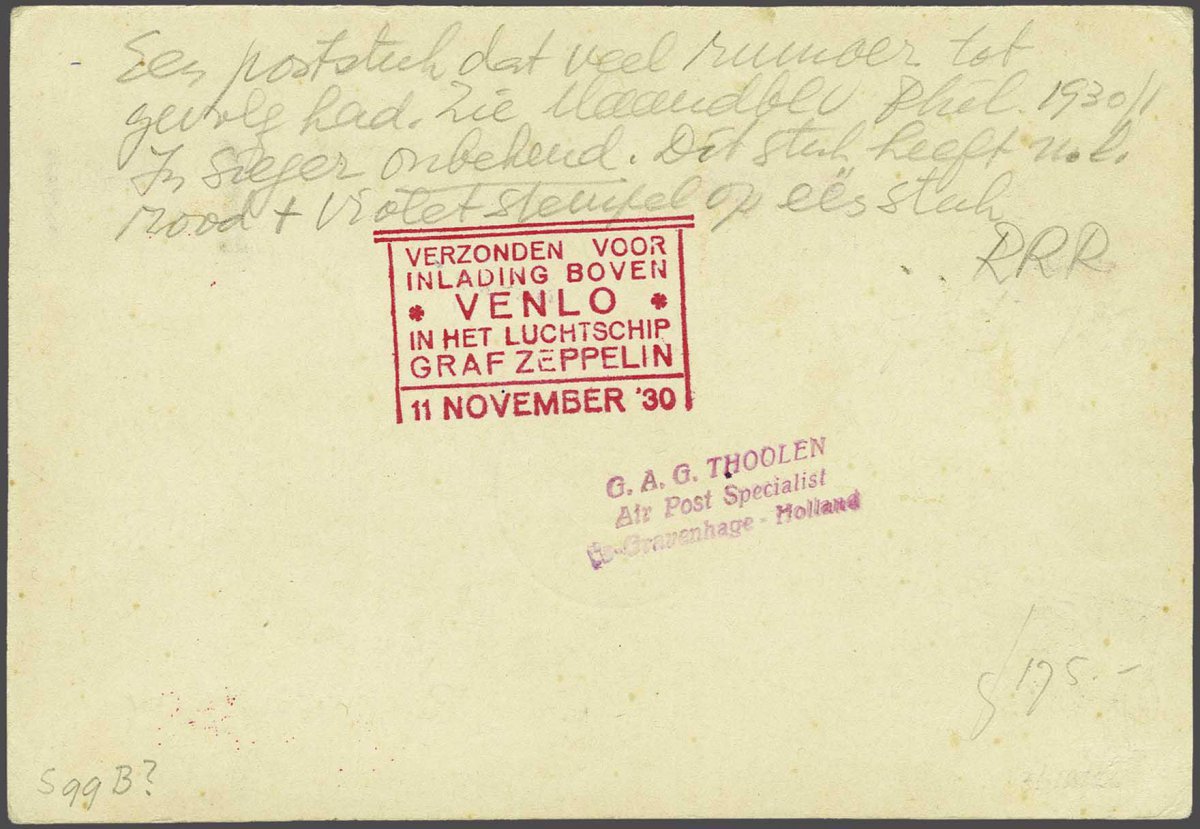 Een poststuk dat veel rumoer tot
gevolg had. Zie Maandblv Phil. 1930/1
In Sieger onbekend. Dit stuk heeft n.l.
rood + violet stempel op één stuk
RRR
VERZONDEN VOOR
INLADING BOVEN
VENLO
IN HET LUCHTSCHIP
GRAF ZEPPELIN
11 NOVEMBER '30
G. A. G. THOOLEN
Air Post Specialist
's-Gravenhage - Holland
f 175.-
S 99 B?